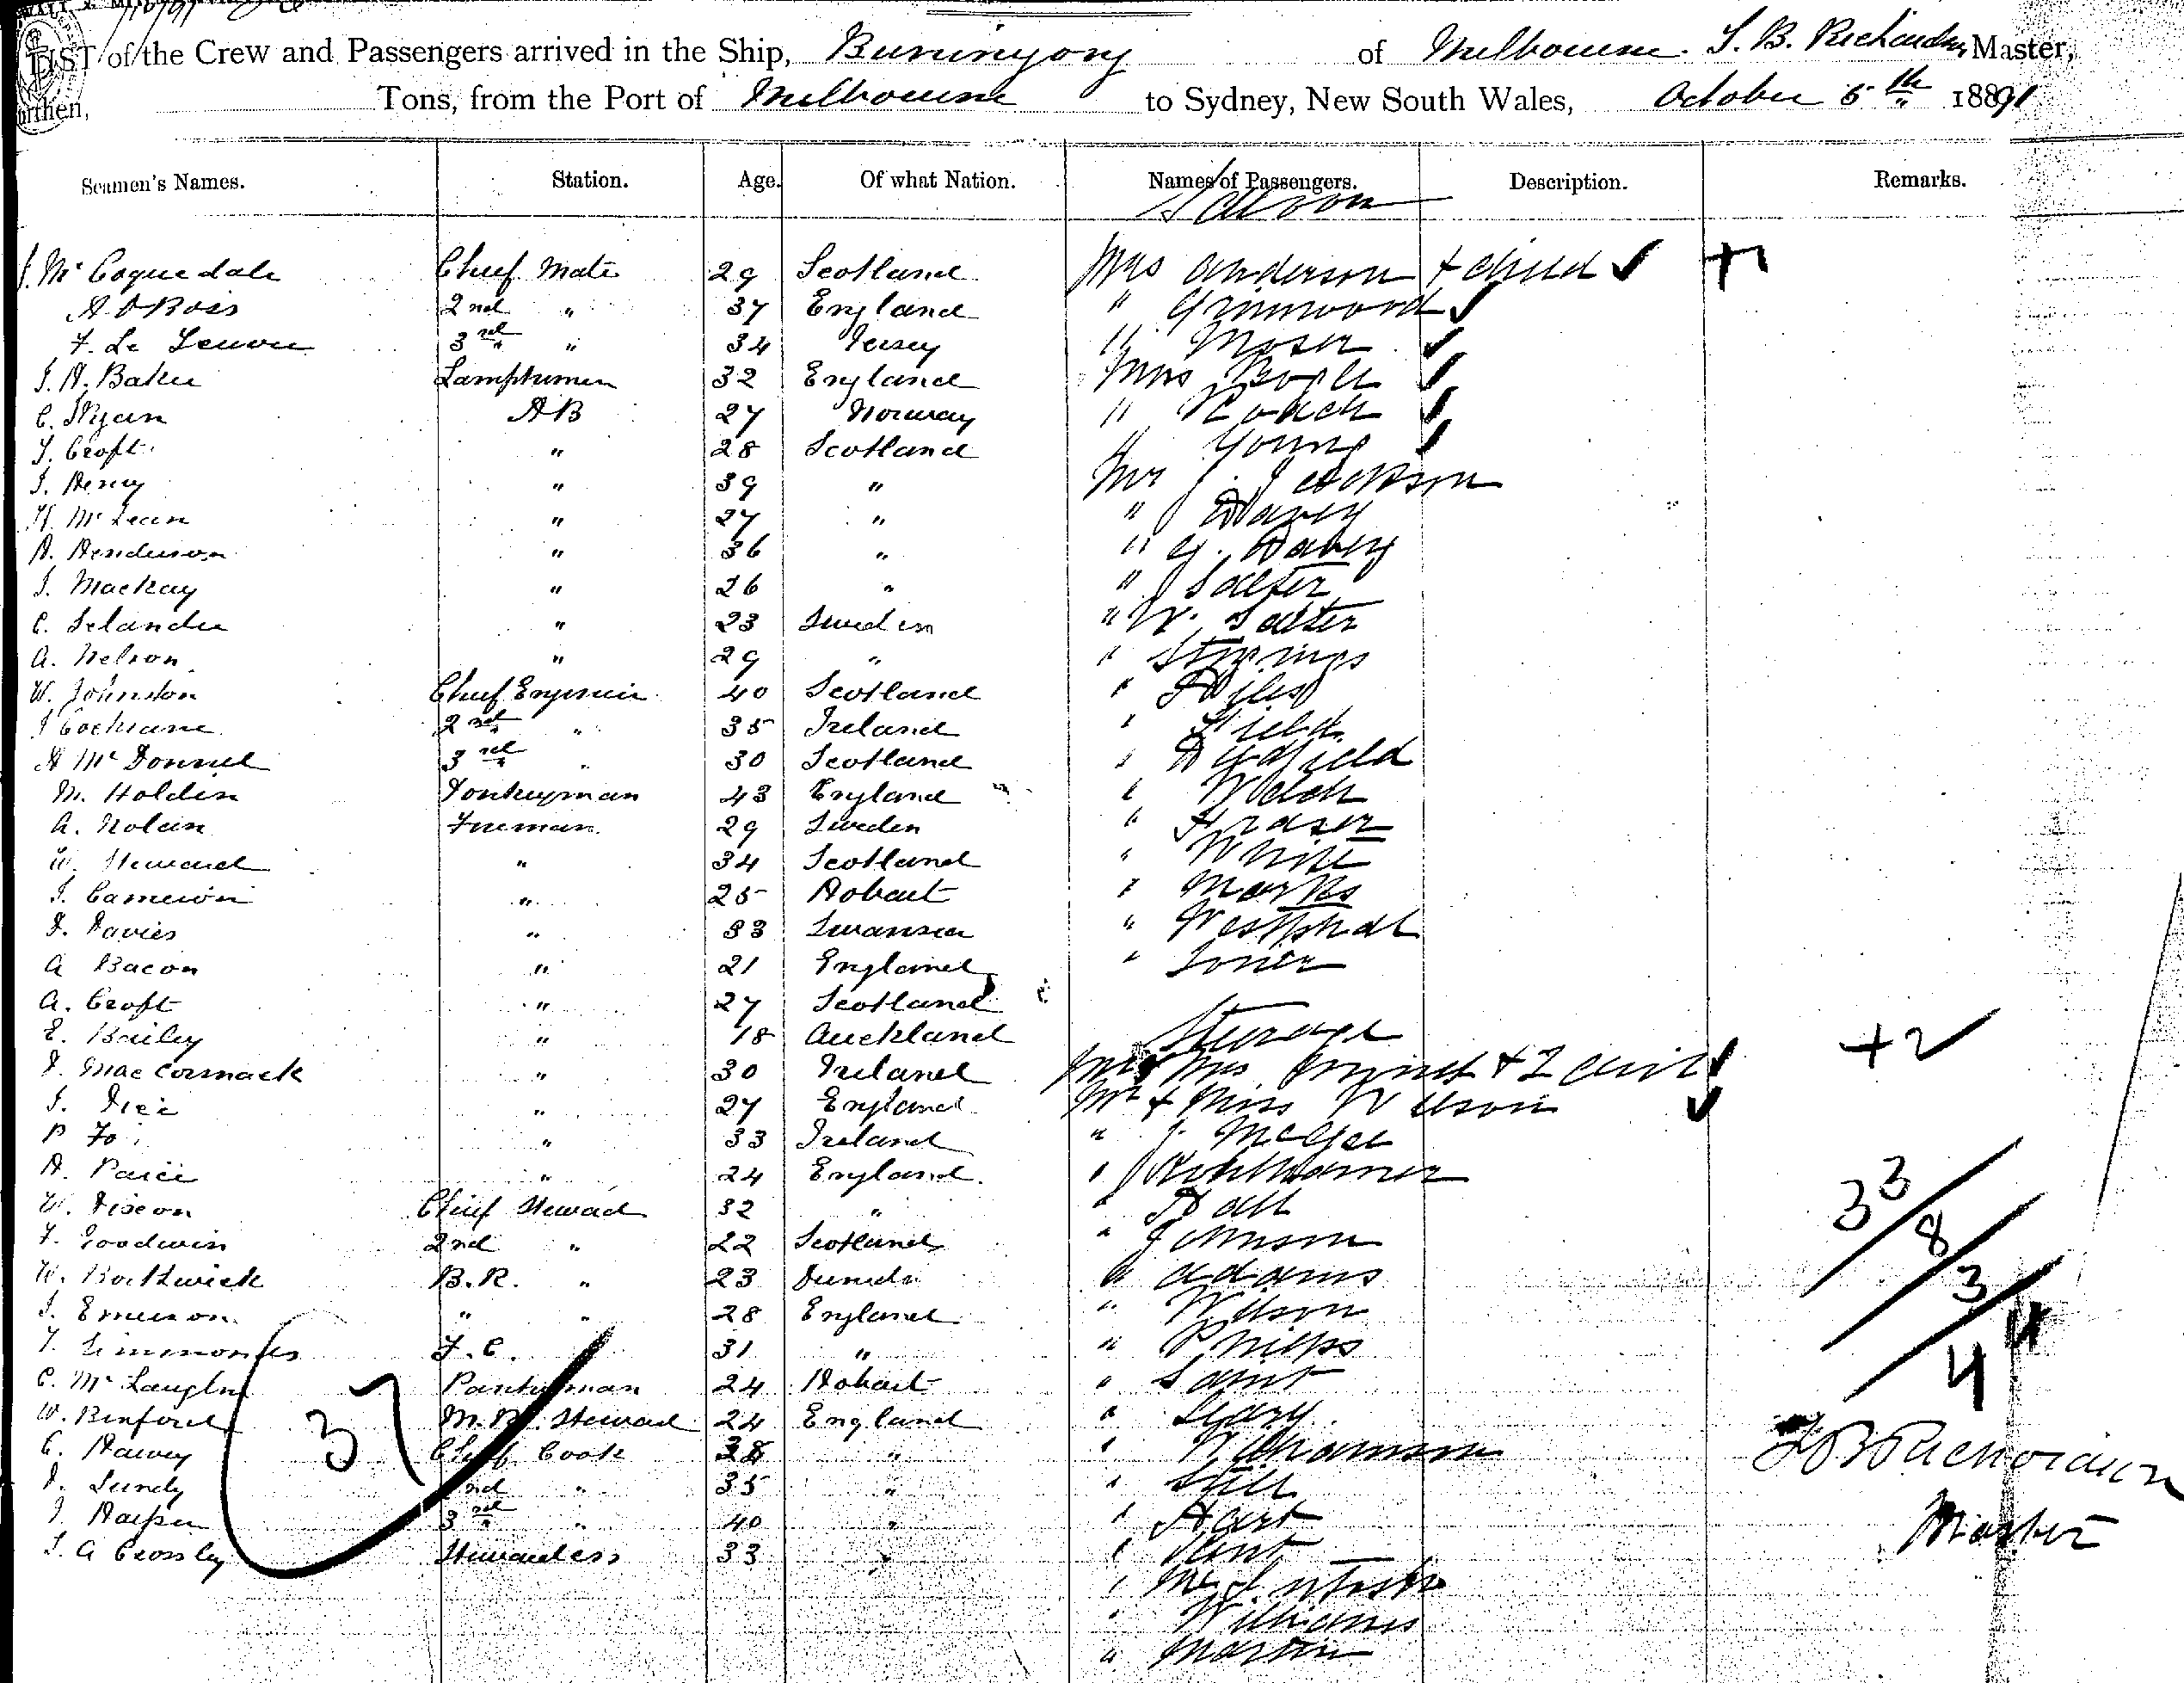 LIST of the Crew and Passengers arrived in the Ship, Buninyong of Melbourne. S. B. Richardson Master,
Burthen, Tons, from the Port of Melbourne to Sydney, New South Wales, October 5th 1891
Seamen's Names. Station. Age. Of what Nation. Names of Passengers. Description. Remarks.
Saloon
J. Mc Coquedale Chief Mate 29 Scotland Mrs Anderson + child +1
A. D Bois 2nd " 37 England " Grimwood
F. Le 3rd " 34 Jersey " Moser
J. H. Baker Lamptrimer 32 England Miss Boyle
C. Ryan AB 27 Norway " Roach
J. Croft " 28 Scotland " Young
J. Henry " 39 " Mr J. Jackson
H. McLean " 27 " " Davey
A. Henderson " 36 " " G. Davey
J. Mackay " 26 " " J Salter
C. Selander " 23 Sweden " W. Salter
A. Nelson " 29 " "
W. Johnston Chief Engineer 40 Scotland " Hyles
J Cochrane 2nd " 35 Ireland " Field
A McDonnel 3rd " 30 Scotland " Hadfield
M. Holden Donkeyman 43 England " Welch
A. Nolan Fireman 29 Sweden " Fraser
W. Steward " 34 Scotland " White
J. Cameron " 25 Hobart " Marks
D. Davies " 33 Swansea " Westphal
A Bacon " 21 England "
A. Croft " 27 Scotland
E. Bailey " 18 Auckland Steerage +2
D. MacCormack " 30 Ireland Mr Mrs + 2 chil
J. " 27 England Mr + Miss Wilson
P " 33 Ireland " J. McGee
A. Paice " 24 England "
W. Dixon Chief Steward 32 " " Hall 33
F. Goodwin 2nd " 22 Scotland " Johnson 8
W. Borthwick B.R. " 23 Dundee " Adams 3
J. Emerson " " 28 England " Wilson 44
F. Simmonds F.C. 31 " " Philps
C. McLaughn Pantryman 24 Hobart " Saint
W. Binford 37 M.R. Steward 24 England " Leary
C. Harvey Chief Cook 38 " " Williamson S B Richardson
D. Lundy 2nd " 35 " " Still
J. Harper 3rd " 40 " " Hart Master
J. A Crossley Stewardess 33 " "
" McIntosh
" Williams
" Martin